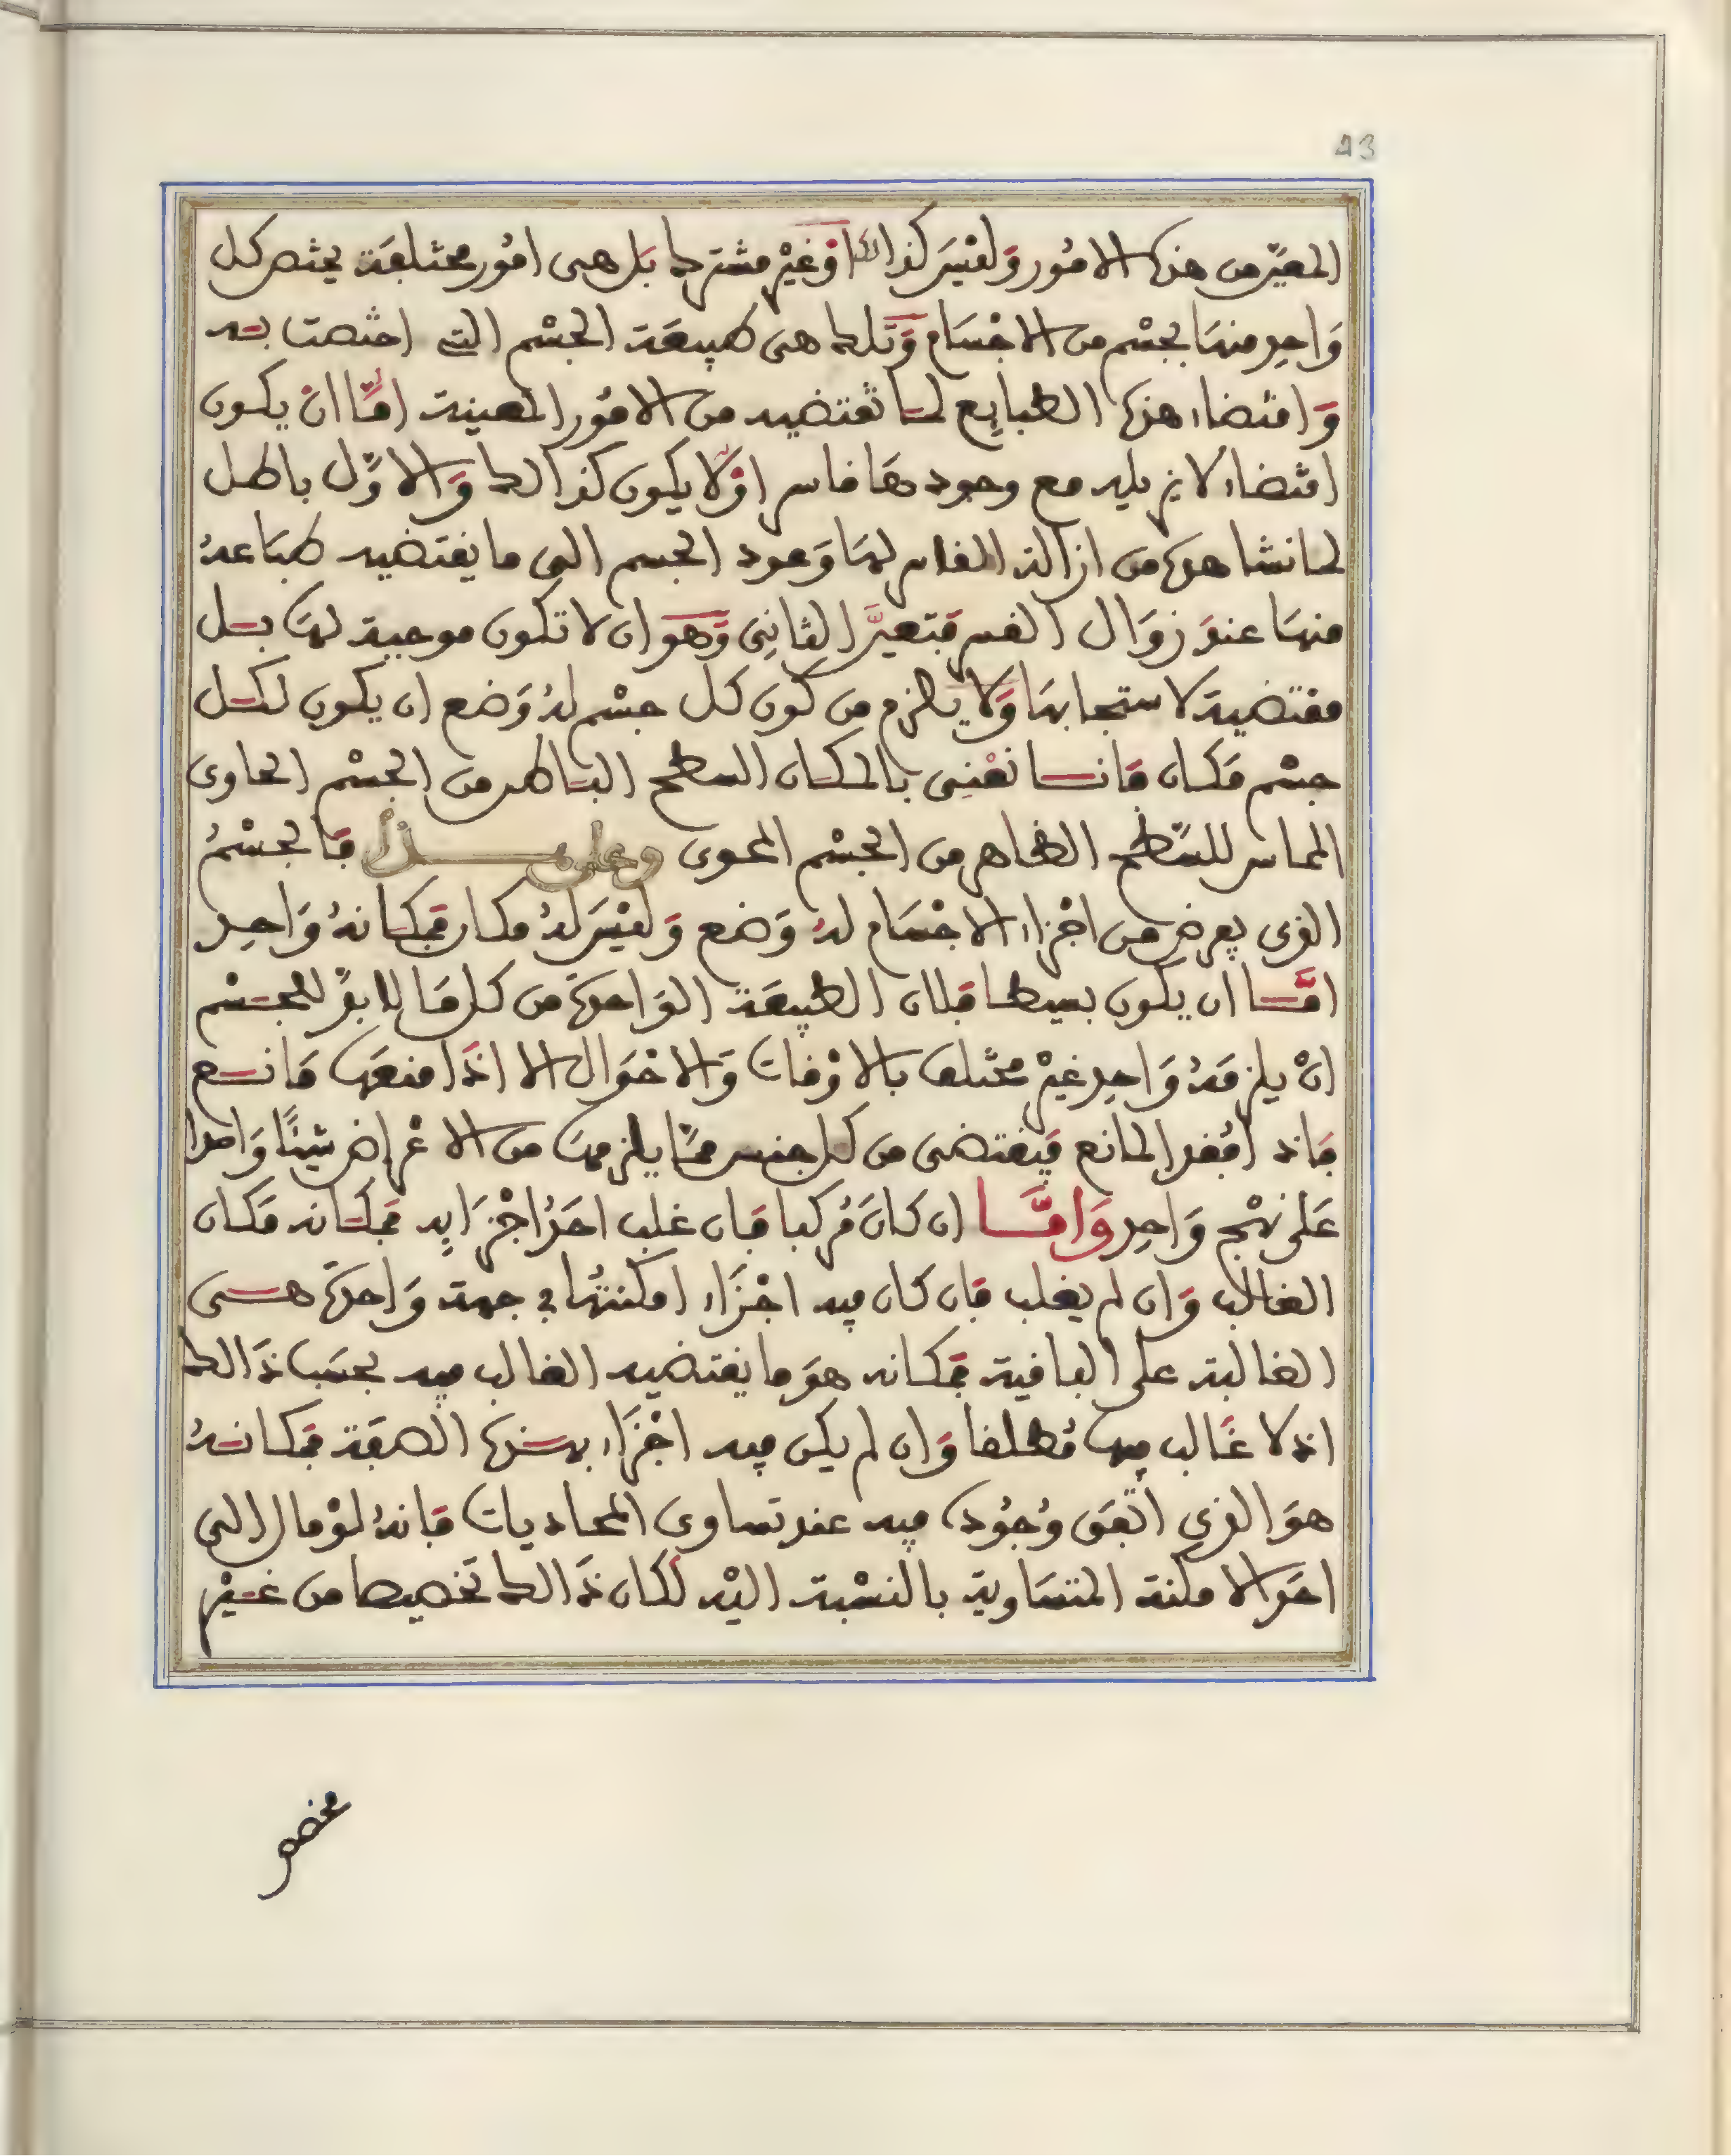 43
المعيّن من هذه الامُور وَلَيْسَ كذالك اوْ غيْر مشترك بَل هى امُور مختلفَة يختص كل
وَاحِدٍ منهَا بجسْم من الاجْسَام وَتلك هى طبيعَة الجسْم التى اختصت به
وَاقتضاء هذه الطبايِع لما تقتضيه من الامُور المعينة امَّا انْ يكون
اقتضاء لا يزيله مع وجودها قاسر اوْ لَا يكون كذالك وَالاوَّل باطل
لما نشاهده من ازالة القاسر لهَا وَعود الجسم الى ما يقتضيه طبَاعهُ
منهَا عند زوَال القسر فتعيَّن الثانِى وَهو ان لا تكون موجبة لهَا بل
مقتضية لاستجابهَا وَلَا يلزم من كون كل جسْم لهُ وَضع ان يكون لكل
جسْم مَكان فانا نعْنِى بالمكان السطح البَاطن من الجسْم الحاوى
المماس للسَّطح الظاهر من الجسْم المحوى وعلى هذا فالجسْمُ
الذى يعرض من اجْزاء الاجْسَام لهُ وَضع وَلَيْسَ لهُ مكان فمَكانهُ وَاحد
امَّا ان يكون بسيطا فلان الطبيعَة الوَاحدة من كل مَا لابدّ للجسْم
انْ يلزمَهُ وَاحد غيْر مختلف بالاوْقات وَالاحْوَال الا اذَا منعَهَا مَانع
فانه اذا فقد المانع فيَقتضى من كل جنس ممَّا يلزمهَا من الاعْراض شيئًا وَاحدا
عَلى نهْج وَاحِد وَامَّا ان كانَ مُركبا فان غلب احَدُ اجْزَايِه فمكانه مَكان
الغالب وَان لم يغلب فان كان فيه اجْزَاء امكنتُهَا فى جهة وَاحدة هى
الغالبة على الباقية فمَكانه هوَ ما يقتضيه الغالب فيه بحسَب ذَالك
اذ لا غَالب فيهَا مُطلقا وَان لم يكن فيه اجْزَاء بهذه الصفَة فمَكانهُ
هوَ الذى اتّفق وُجُوده فيه عند تساوى المحاديات فانهُ لوْ مال الى
احَد الامكنة المتسَاوية بالنسْبة اليْه لكَان ذَالك تخصيصا من غيْر
مخصص